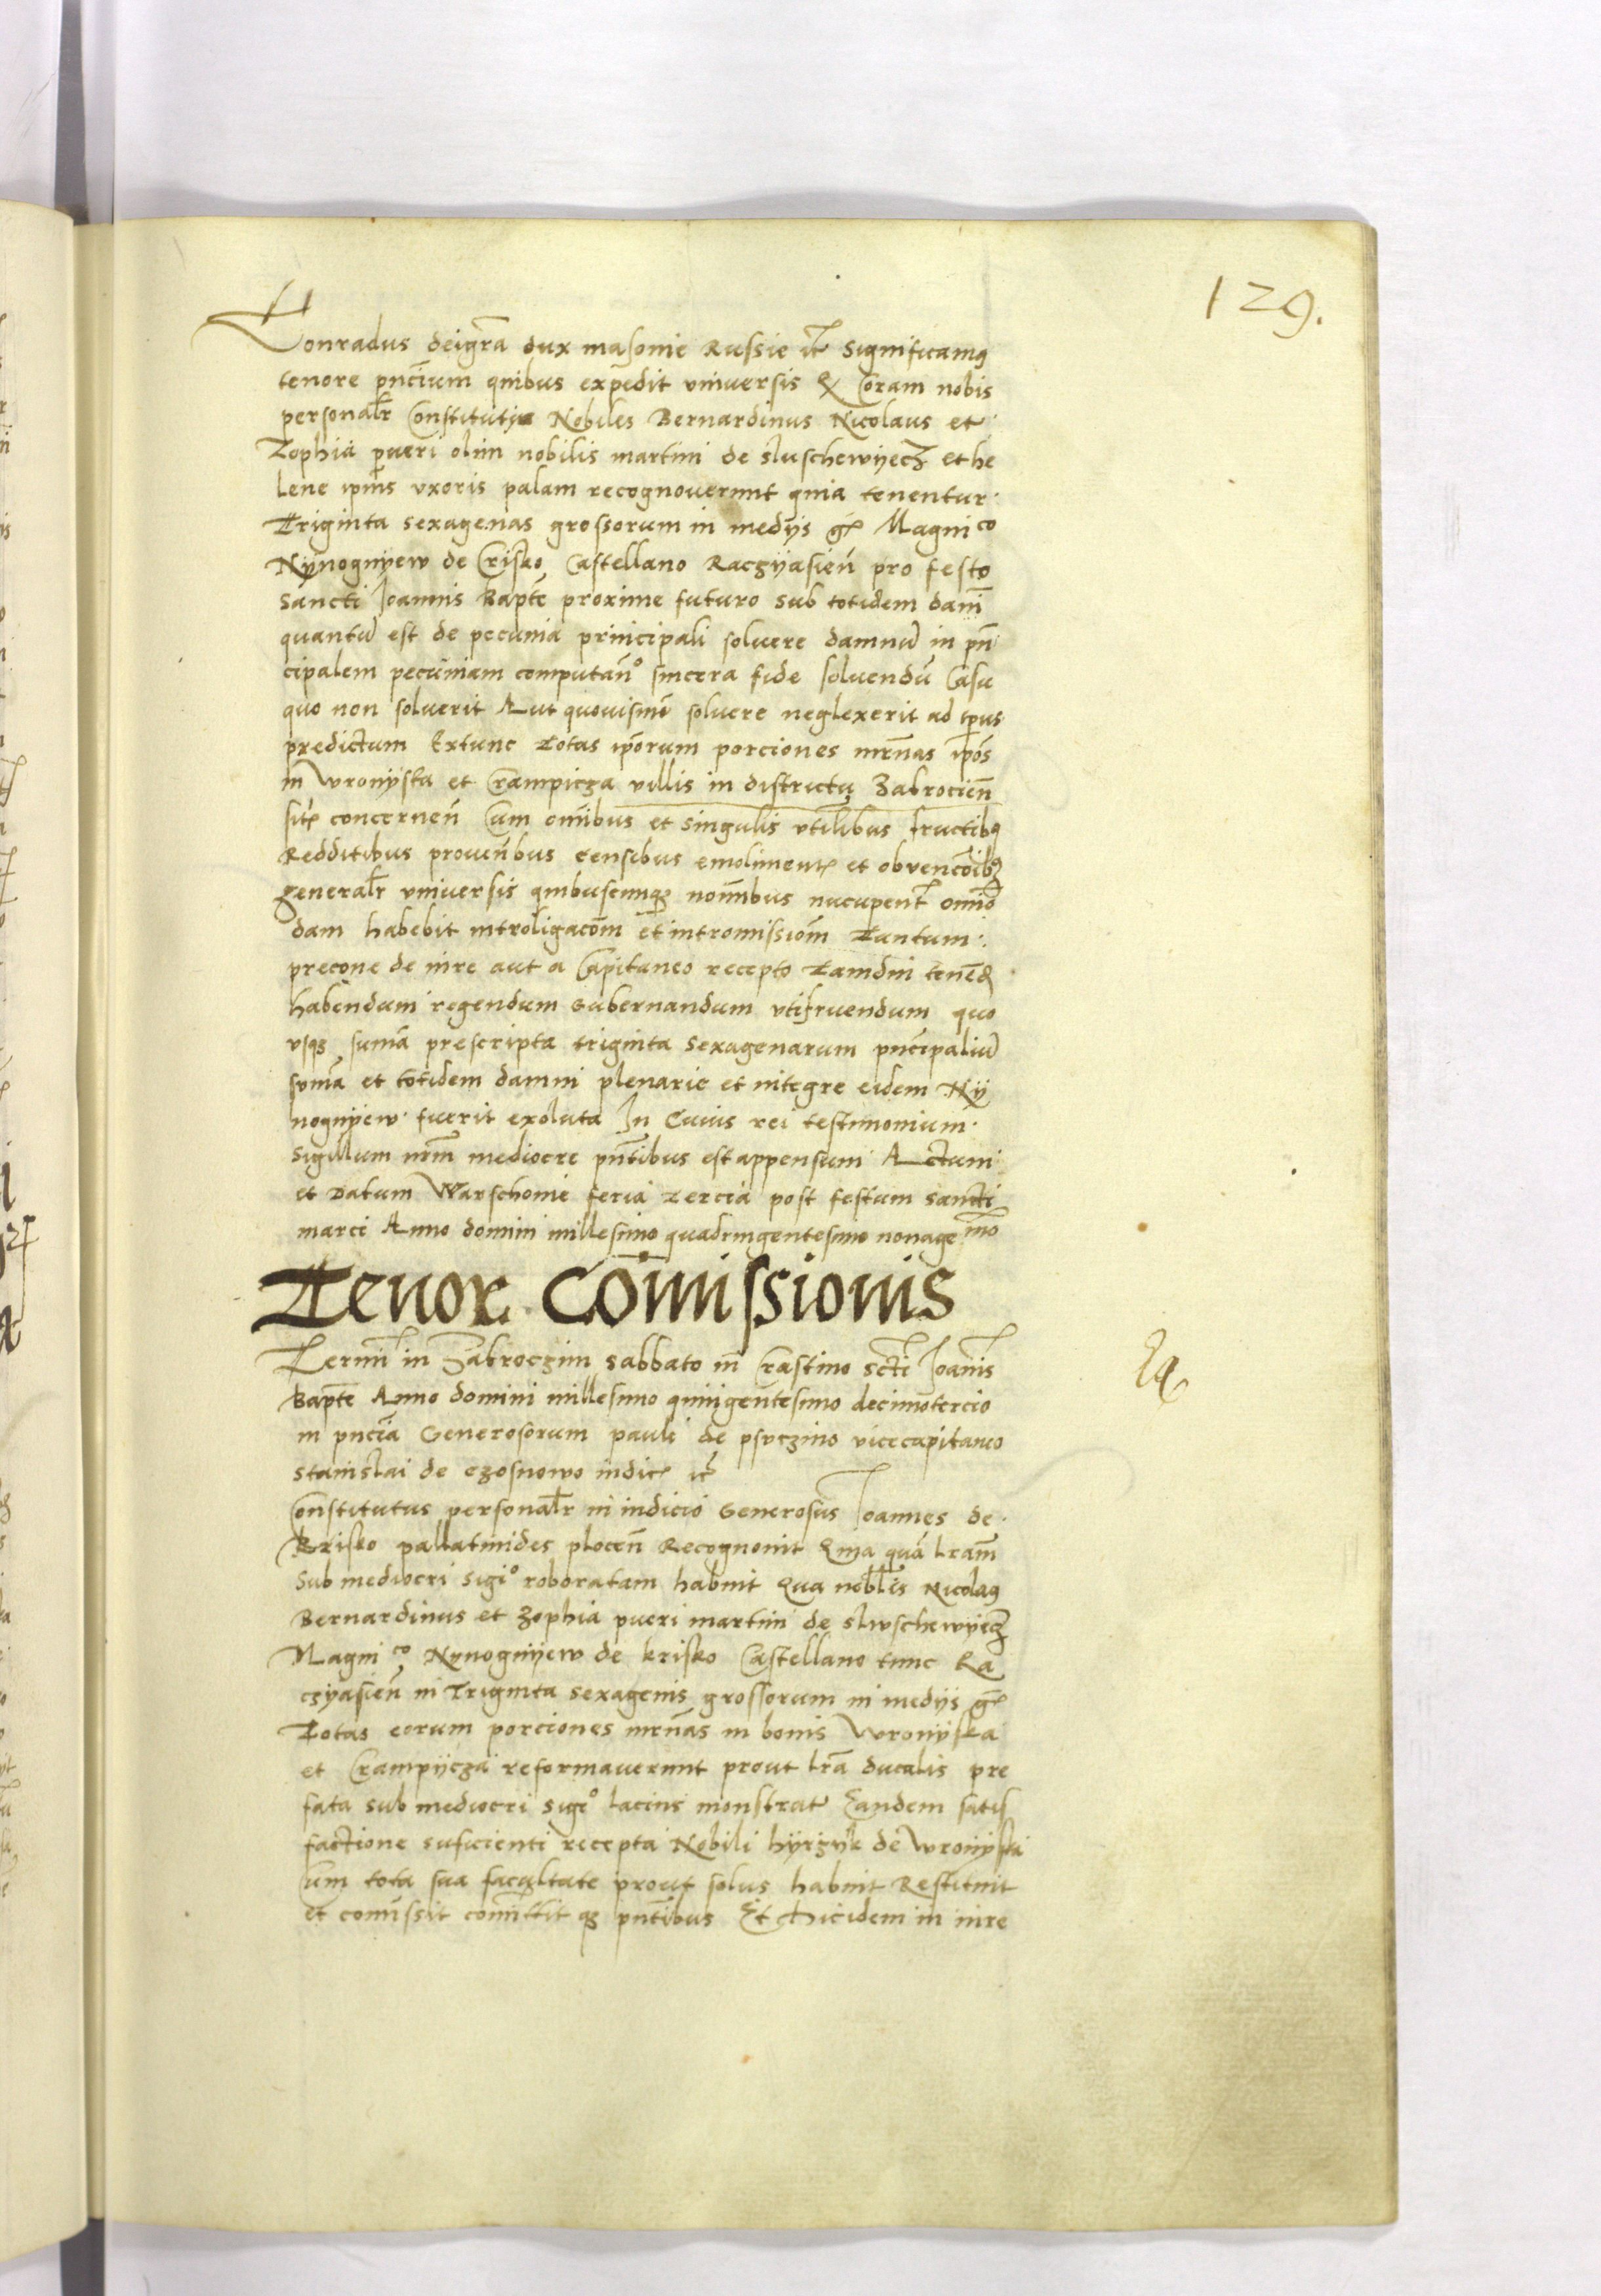 129.
Conradus deigrā dux masonie Russie etc̄ Significamꝰ
tenore pn̄cium quibus expedit vniuersis Qꝫ Coram nobis
personalr̄ Constituty Nobiles Bernardinus Nicolaus et
Zophia pueri olim nobilis martini de sluschewÿecz et he
lene ip̄ius vxoris palam recognouerunt quia tenentur
Triginta sexagenas grossorum in medÿs gr̄ Magnico
Nÿnognÿew de Crisko Castellano Raczÿasien̄ pro festo
Sancti Joannis Bapt̄e proxime futuro sub totidem dam̄
quantū est de pecunia principali soluere damnū in prin̄
cipalem pecuniam computan̄o sincera fide soluendū Casu
quo non soluerit Aut quouismō soluere neglexerit ad tp̄us
predictum Extunc Totas ip̄orum porciones mr̄nas ip̄os
in Wronÿska et Crampicza villis in districtu Zabrocien̄
sitꝭ concernen̄ Cum om̄ibus et singulis vtilibus fructibꝫ
Redditibus prouen̄bus censibus emolimentꝭ et obvenc̄oibꝫ
generalr̄ vniuersis quibuscunqꝫ nom̄ibus nucupent̄ omnio
dam habebit introligac̄om et intromissiom̄ Tantum
precone de iure aut a Capitaneo recepto Tamdiu tenēd
habendum regendum Gubernandum vtifruendum quo
vsqꝫ sum̄a prescripta triginta sexagenarum pn̄cipaliū
sum̄a et totidem damni plenarie et integre eidem Nÿ
nognÿew fuerit exoluta In Cuius rei testimonium
Sigillum nr̄m mediocre pn̄tibus est appensum Actum
et Datum Warschonie feria tercia post festum Sancti
marci Anno domini millesimo quadringentesimo nonagemo
Tenor Com̄issionis
Termī in Zabroczim Sabbato in Crastino Sct̄i Joanīs
Bapt̄e Anno domini millesimo quingentesimo decimotercio
in pn̄cia Generosorum pauli de psuczino vicecapitaneo
Stanislai de czosnowo iudicꝭ etc̄
Constitutus personalr̄ in iudicio Generosus Joannes de
Krisko pallatinides plocen̄ Recognouit Quia quā lr̄am
Sub mediocri sigio roboratam habuit Qua nobilis Nicolaꝰ
Bernardinus et Zophia pueri martini de slwschewÿecz
Magnico Nÿnognÿew de krisko Castellano tunc Ra
czÿasien̄ in Triginta sexagenis grossorum in medÿs gr̄
Totas eorum porciones mr̄nas in bonis Wronÿska
et Crampÿcza reformauerunt prout lr̄a ducalis pre
fata sub mediocri sigio lacius monstrat Eandem satis
factione suficienti recepta Nobili hÿrzÿk de Wronÿska
Cum tota sua facultate prout solus habuit Restituit
et com̄issit com̄ittit qꝫ pn̄tibus Et hic idem in iure